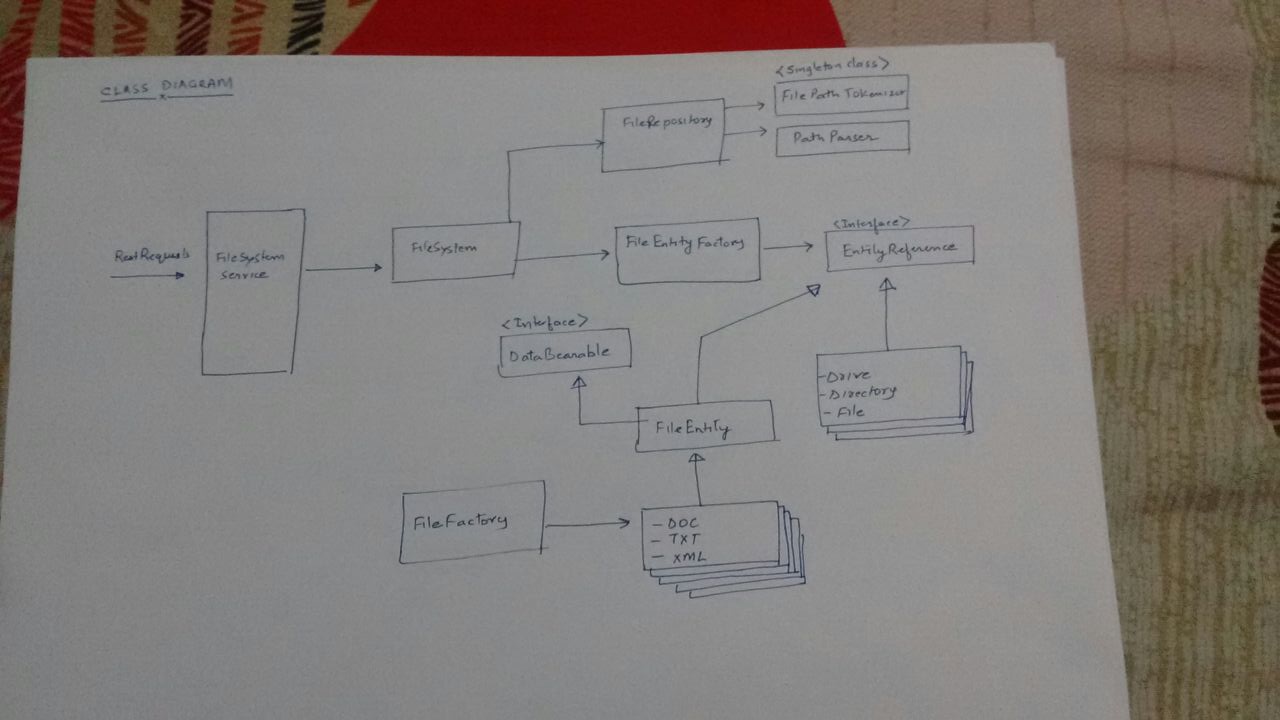 CLASS DIAGRAM
<Singleton class>
File Path Tokenizer
FileRepository
Path Parser
RestRequests
FileSystem
Service
FileSystem
File Entity Factory
<Interface>
EntityReference
<Interface>
DataBeanable
- Drive
- Directory
- File
FileEntity
FileFactory
- DOC
- TXT
- XML